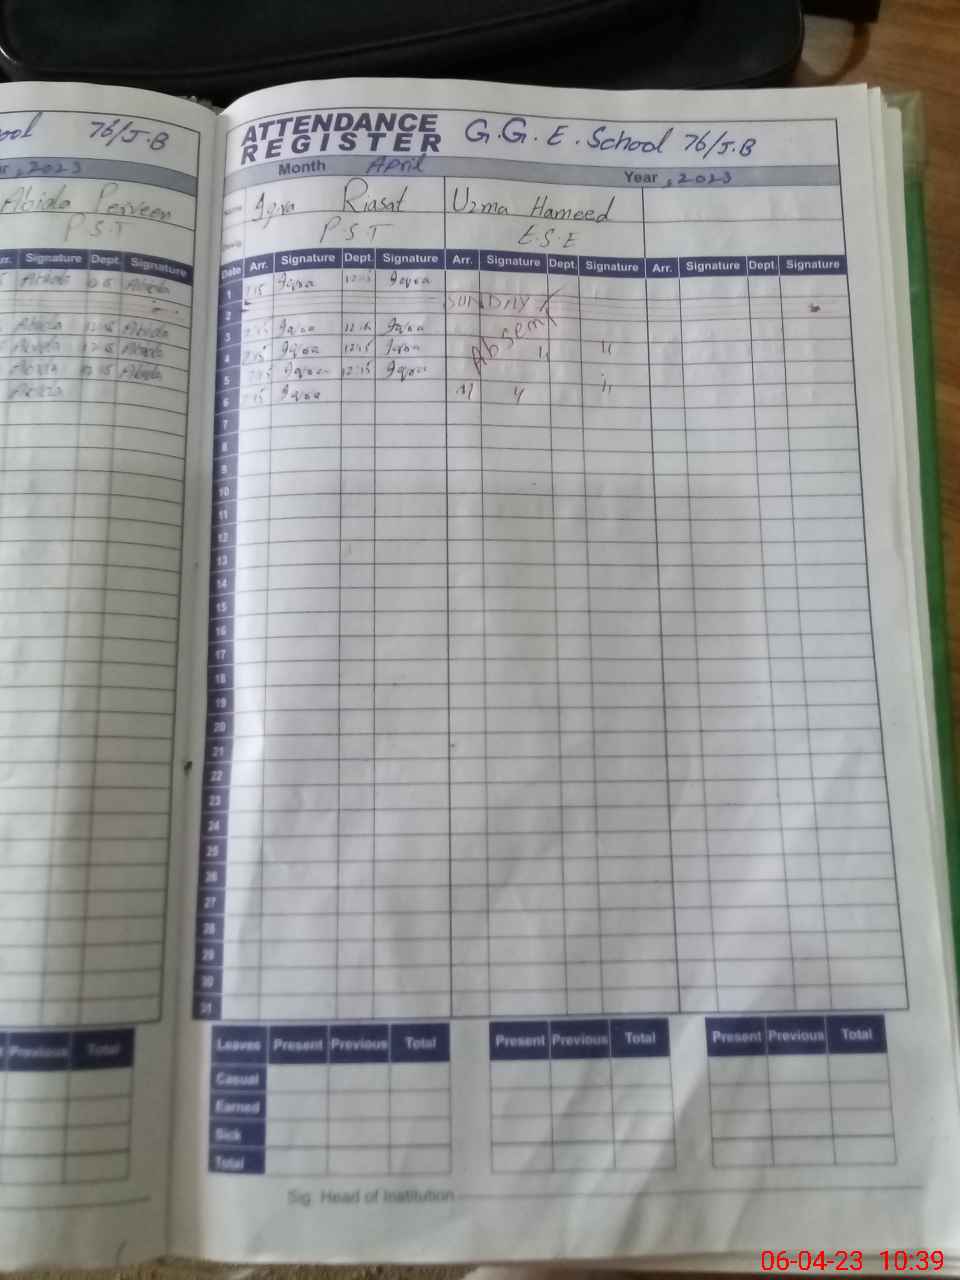 76/J.B
, 2023
Abida Perveen
P.S.T
Arr. Signature Dept. Signature
Abida Abida
Abida 12:15 Abida
Abida 12:15 Abida
Abida 12:15 Abida
Abida
Previous Total
ATTENDANCE
REGISTER
G.G.E.School 76/J.B
Month April Year , 2023
Iqra Riasat Uzma Hameed
P.S.T E.S.E
Date Arr. Signature Dept. Signature Arr. Signature Dept. Signature Arr. Signature Dept. Signature
1 7:15 Iqraa 12:15 Iqraa
2 SUNDAY
3 Iqraa Iqraa Absent
4 7:15 Iqraa 12:15 Iqraa " "
5 7:15 Iqraa 12:15 Iqraa "
6 7:15 Iqraa " "
7
8
9
10
11
12
13
14
15
16
17
18
19
20
21
22
23
24
25
26
27
28
29
30
31
Leaves Present Previous Total Present Previous Total Present Previous Total
Casual
Earned
Sick
Total
Sig. Head of Institution
06-04-23 10:39